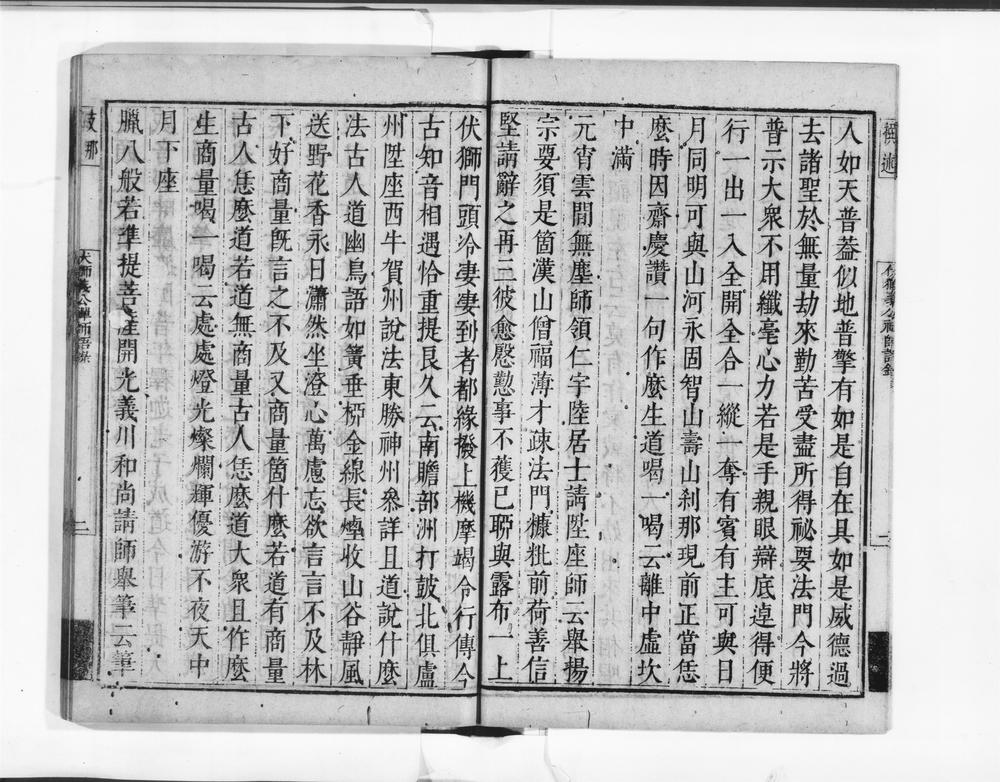 人如天普葢似地普擎有如是自在具如是威德過
去諸聖於無量劫來勤苦受盡所得祕要法門今將
普示大衆不用纖毫心力若是手親眼辯底逴得便
行一出一入全開全合一縱一奪有賓有主可與日
月同明可與山河永固智山壽山刹那現前正當恁
麼時因齋慶讚一句作麼生道喝一喝云離中虛坎
中滿
元宵雲間無塵師領仁宇陸居士請陞座師云舉揚
宗要須是箇漢山僧福薄才疎法門糠粃前荷善信
堅請辭之再三彼愈慇懃事不獲已聊與露布一上
伏獅門頭冷淒淒到者都緣撥上機摩竭令行傳今
古知音相遇恰重提良久云南贍部洲打鼓北俱盧
州陞座西牛賀州說法東勝神州叅詳且道說什麼
法古人道幽鳥語如簧垂桺金線長煙收山谷靜風
送野花香永日瀟然坐澄心萬慮忘欲言言不及林
下好商量旣言之不及又商量箇什麼若道有商量
古人恁麼道若道無商量古人恁麼道大衆且作麼
生商量喝一喝云處處燈光燦爛輝優游不夜天中
月下座
臘八般若準提菩薩開光義川和尚請師舉筆云筆
支那
二